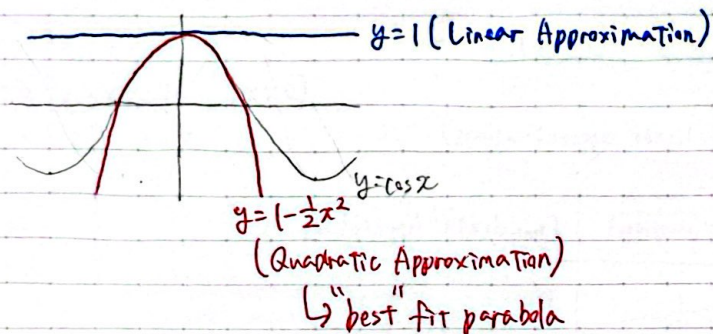 y=1 (Linear Approximation)
y=cosx
y=1-½x²
(Quadratic Approximation)
↳ "best" fit parabola